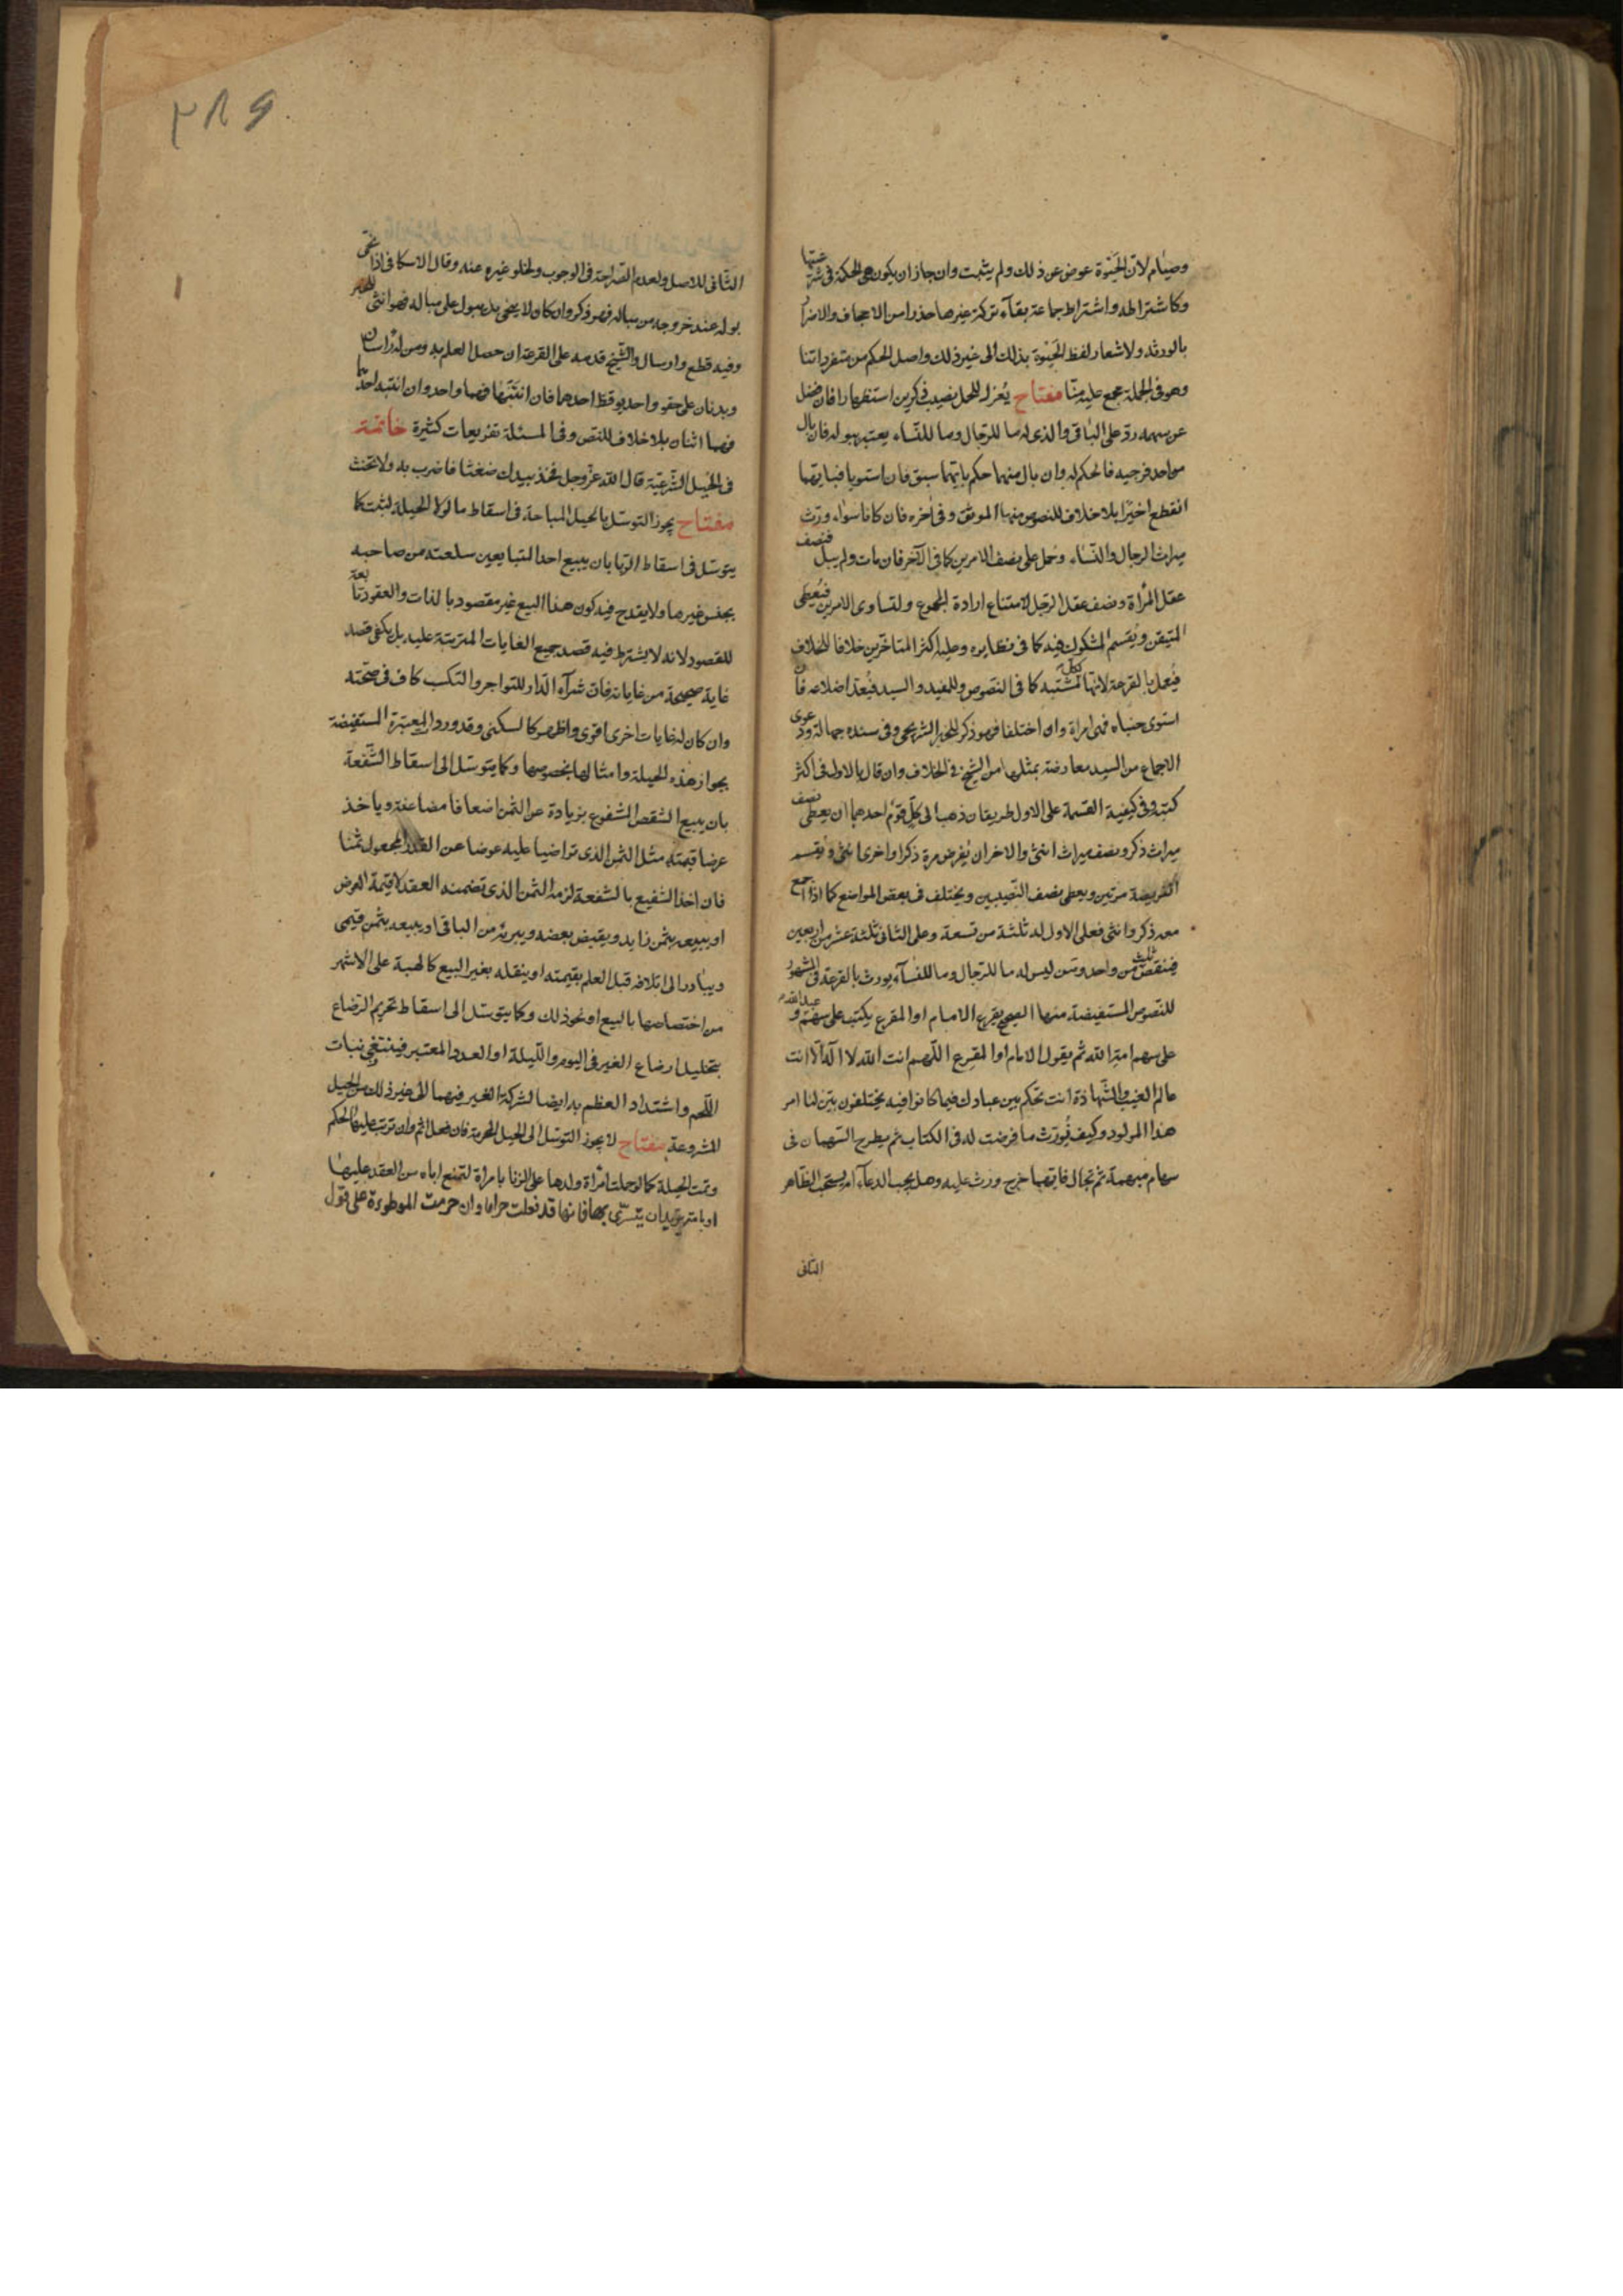 وصيام لان الحبوة عوض عن ذلك ولم يثبت وان جاز ان يكون هي الحكمة في شرعيتها
وكاشتراط واشتراط جماعة بقاء تركة غيرها حذرا من الاجحاف والاضرار
بالورثة ولاشعار لفظ الحبوة بذلك الى غير ذلك واصل الحكم من متفرداتنا
وهو في الجملة مجمع عليه منا مفتاح يعزل للحمل نصيب ذكرين استظهارا فان فضل
عن سهمه رد على الباقي والذي له ما للرجال وما للنساء يعتبر ببوله فان بال
من احد فرجيه فالحكم له وان بال منهما حكم بايتهما سبق فان استويا فبايهما
انقطع اخيرا بلا خلاف للنصوص منها الموثق وفي اخره فان كانا سواء ورث
ميراث الرجال والنساء وحمل على نصف الامرين كما في الاخر فان مات ولم يبل فنصف
عقل المرأة ونصف عقل الرجل لامتناع ارادة المجموع ولتساوي الامرين فيعطى
المتيقن ويقسم المشكوك فيه كما في نظايره وعليه اكثر المتاخرين خلافا للخلاف
فيعمل بالقرعة لانها لكل مشتبه كما في النصوص وللمفيد والسيد فيعد اضلاعه فان
استوى جنباه فهي امراة وان اختلفا فهو ذكر للخبر الشريحي وفي سنده جهالة ودعوى
الاجماع من السيد معارضة بمثلها من الشيخ في الخلاف وان قال بالاول في اكثر
كتبه وفي كيفية القسمة على الاول طريقان ذهب الى كل قوم احدهما ان يعطى نصف
ميراث ذكر ونصف ميراث انثى والاخر ان يفرض مرة ذكرا واخرى انثى ويقسم
الفريضة مرتين ويعطى نصف النصيبين ويختلف في بعض المواضع كما اذا اجتمع
معه ذكر وانثى فعلى الاول له ثلثة من تسعة وعلى الثاني ثلثة عشر من اربعين
فينقص ثلث من واحد ومن ليس له ما للرجال وما للنساء يورث بالقرعة في المشهور
للنصوص المستفيضة منها الصحيح يقرع الامام او المقرع يكتب على سهم عبد الله و
على سهم امة الله ثم يقول الامام او المقرع اللهم انت الله لا اله الا انت
عالم الغيب والشهادة انت تحكم بين عبادك فيما كانوا فيه يختلفون بين لنا امر
هذا المولود وكيف يورث ما فرضت له في الكتاب ثم يطرح السهمان في
سهام مبهمة ثم تجال فايهما خرج ورث عليه وهل يجب الدعاء ام يستحب الظاهر
الثاني
٣٨٩
الثاني للاصل ولعدم الصراحة في الوجوب ولخلو غيره عنه وقال الاسكافي اذا نحى
بوله عند خروجه من مباله فهو ذكر وان كان لا ينحى بل يبول على مباله فهو انثى للخبر
وفيه قطع وارسال والشيخ قدمه على القرعة ان حصل العلم به ومن له رأسان
وبدنان على حقو واحد يوقظ احدهما فان انتبها فهما واحد وان انتبه احدهما
فهما اثنان بلا خلاف للنص وفي المسئلة تفريعات كثيرة خاتمة
في الحيل الشرعية قال الله عز وجل فخذ بيدك ضغثا فاضرب به ولا تحنث
مفتاح يجوز التوسل بالحيل المباحة في اسقاط ما لولا الحيلة لثبت كما
يتوسل في اسقاط الربا بان يبيع احد المتبايعين سلعته من صاحبه
بجنس غيرها ولا يقدح فيه كون هذا البيع غير مقصود بالذات والعقود تابعة
للقصود لانه لا يشترط فيه قصد جميع الغايات المترتبة عليه بل يكفي قصد
غاية صحيحة من غاياته فان شراء الدار للتواجر والتكسب كاف في صحته
وان كان له غايات اخرى اقوى واظهر كالسكنى وقد ورد المعتبرة المستفيضة
بجواز هذه الحيلة وامثالها بخصوصها وكما يتوسل الى اسقاط الشفعة
بان يبيع الشقص المشفوع بزيادة عن الثمن اضعافا مضاعفة وياخذ
عرضا قيمته مثل الثمن الذي تراضيا عليه عوضا عن القدر المجعول ثمنا
فان اخذ الشفيع بالشفعة لزمه الثمن الذي تضمنه العقد لا قيمة العرض
او يبيعه بثمن زايد ويقبض بعضه ويبرئه من الباقي او يبيعه بثمن قيمي
ويبادر الى اتلافه قبل العلم بقيمته او ينقله بغير البيع كالهبة على الاشهر
من اختصاصها بالبيع او نحو ذلك وكما يتوسل الى اسقاط تحريم الرضاع
بتخليل ارضاع الغير في اليوم والليلة او العدد المعتبر فينتفي نبات
اللحم واشتداد العظم به ايضا لشركة الغير فيهما الى غير ذلك من الحيل
المشروعة مفتاح لا يجوز التوسل الى الحيل المحرمة فان فعل اثم وان ترتب عليها الحكم
وتمت الحيلة كما لو حملت امرأة ولدها على الزنا بامراة لتمنع اباه من العقد عليها
او بامة يريد ان يتسرى بها فانها قد فعلت حراما وان حرمت الموطوءة على قول